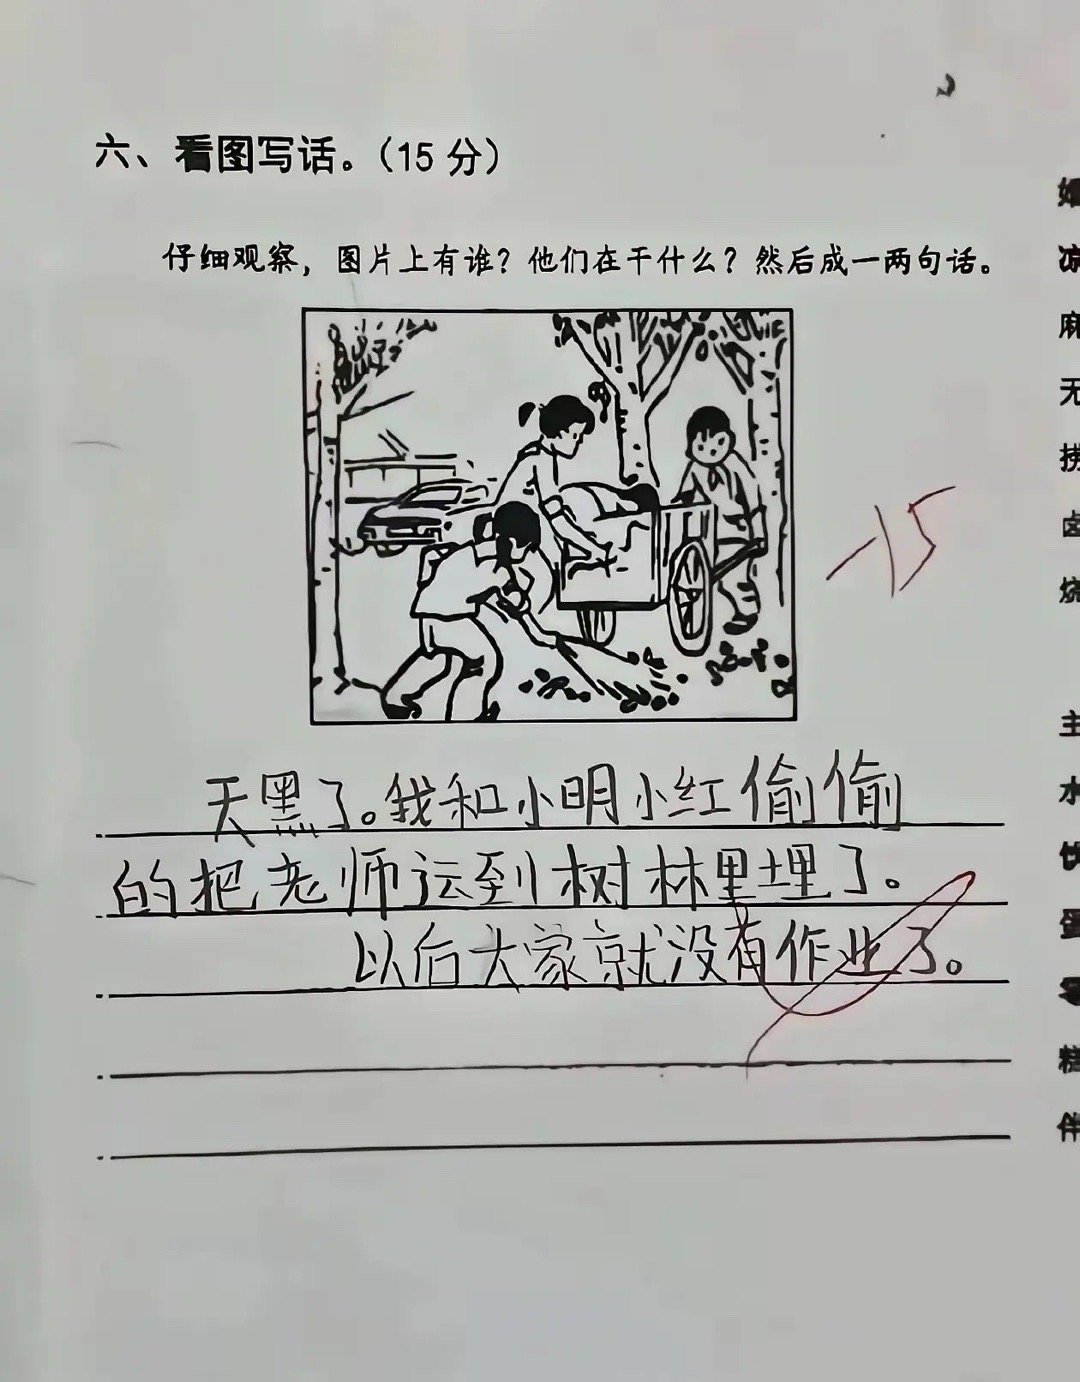 六、看图写话。(15分)
仔细观察，图片上有谁？他们在干什么？然后成一两句话。
-15
天黑了。我和小明小红偷偷
的把老师运到树林里埋了。
以后大家就没有作业了。
麻
无
捞
卤
烧
主
水
饮
蛋
糕
伴